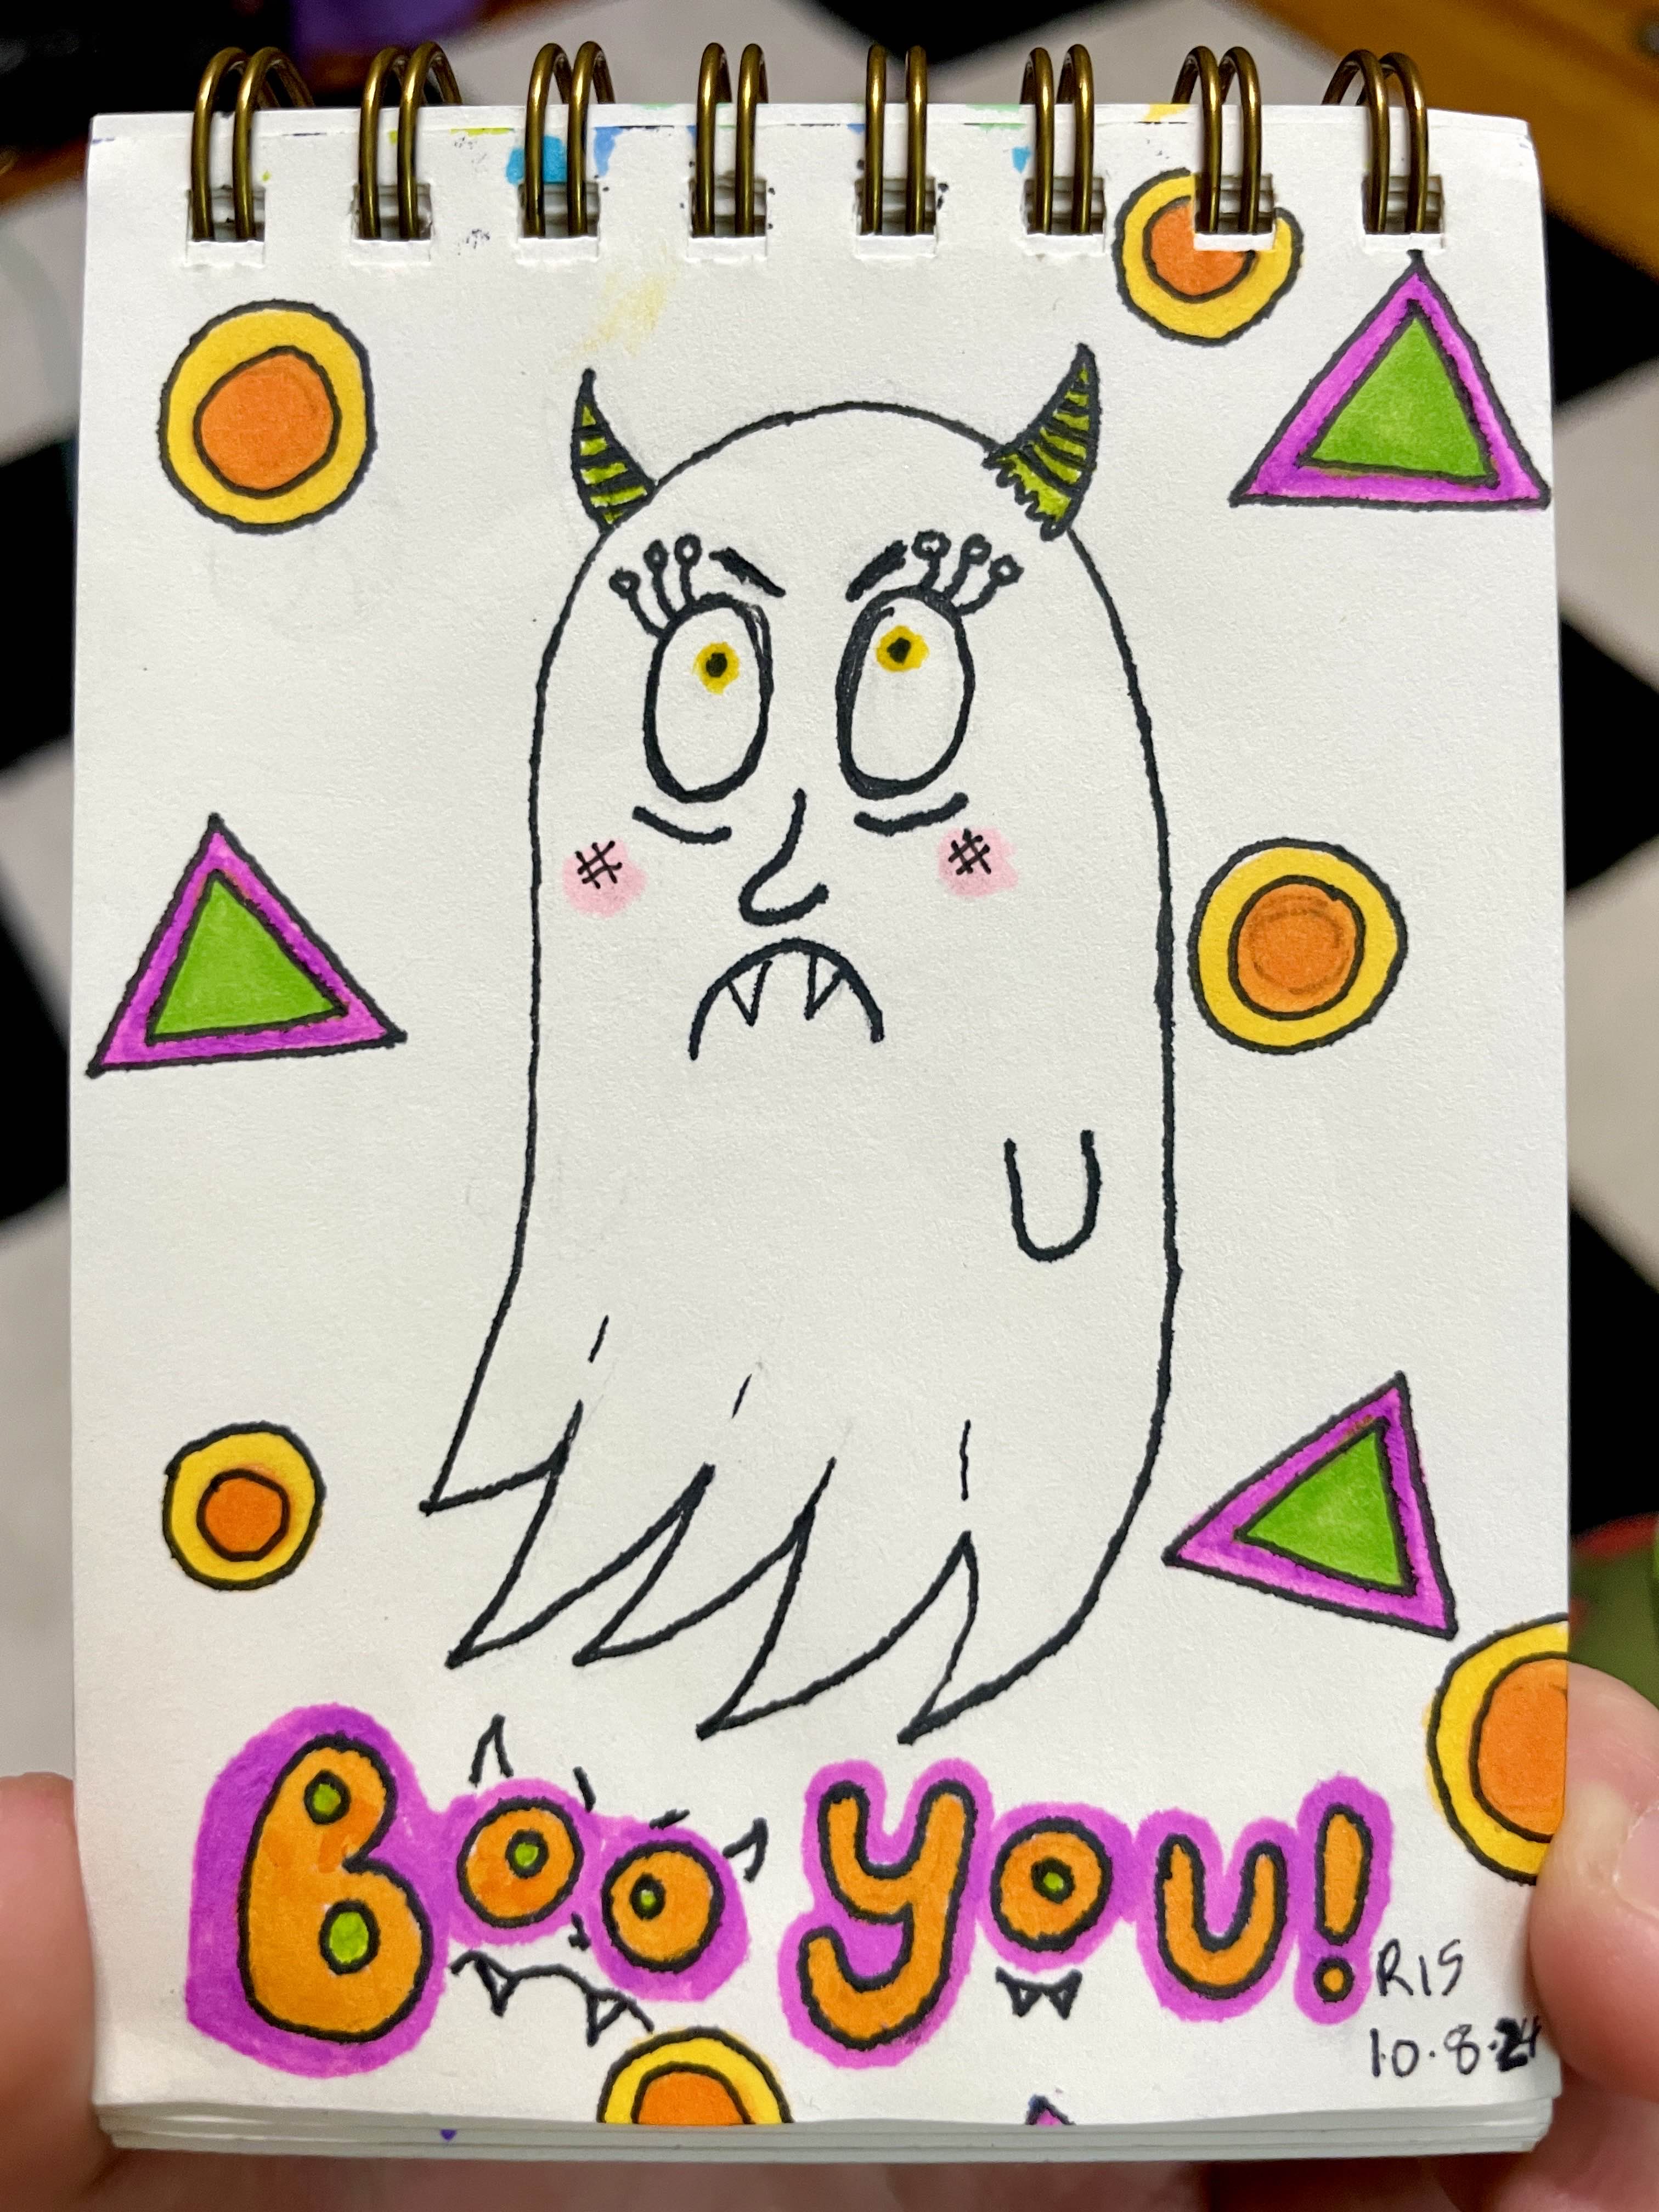 Boo you!
RIS
10.8.24